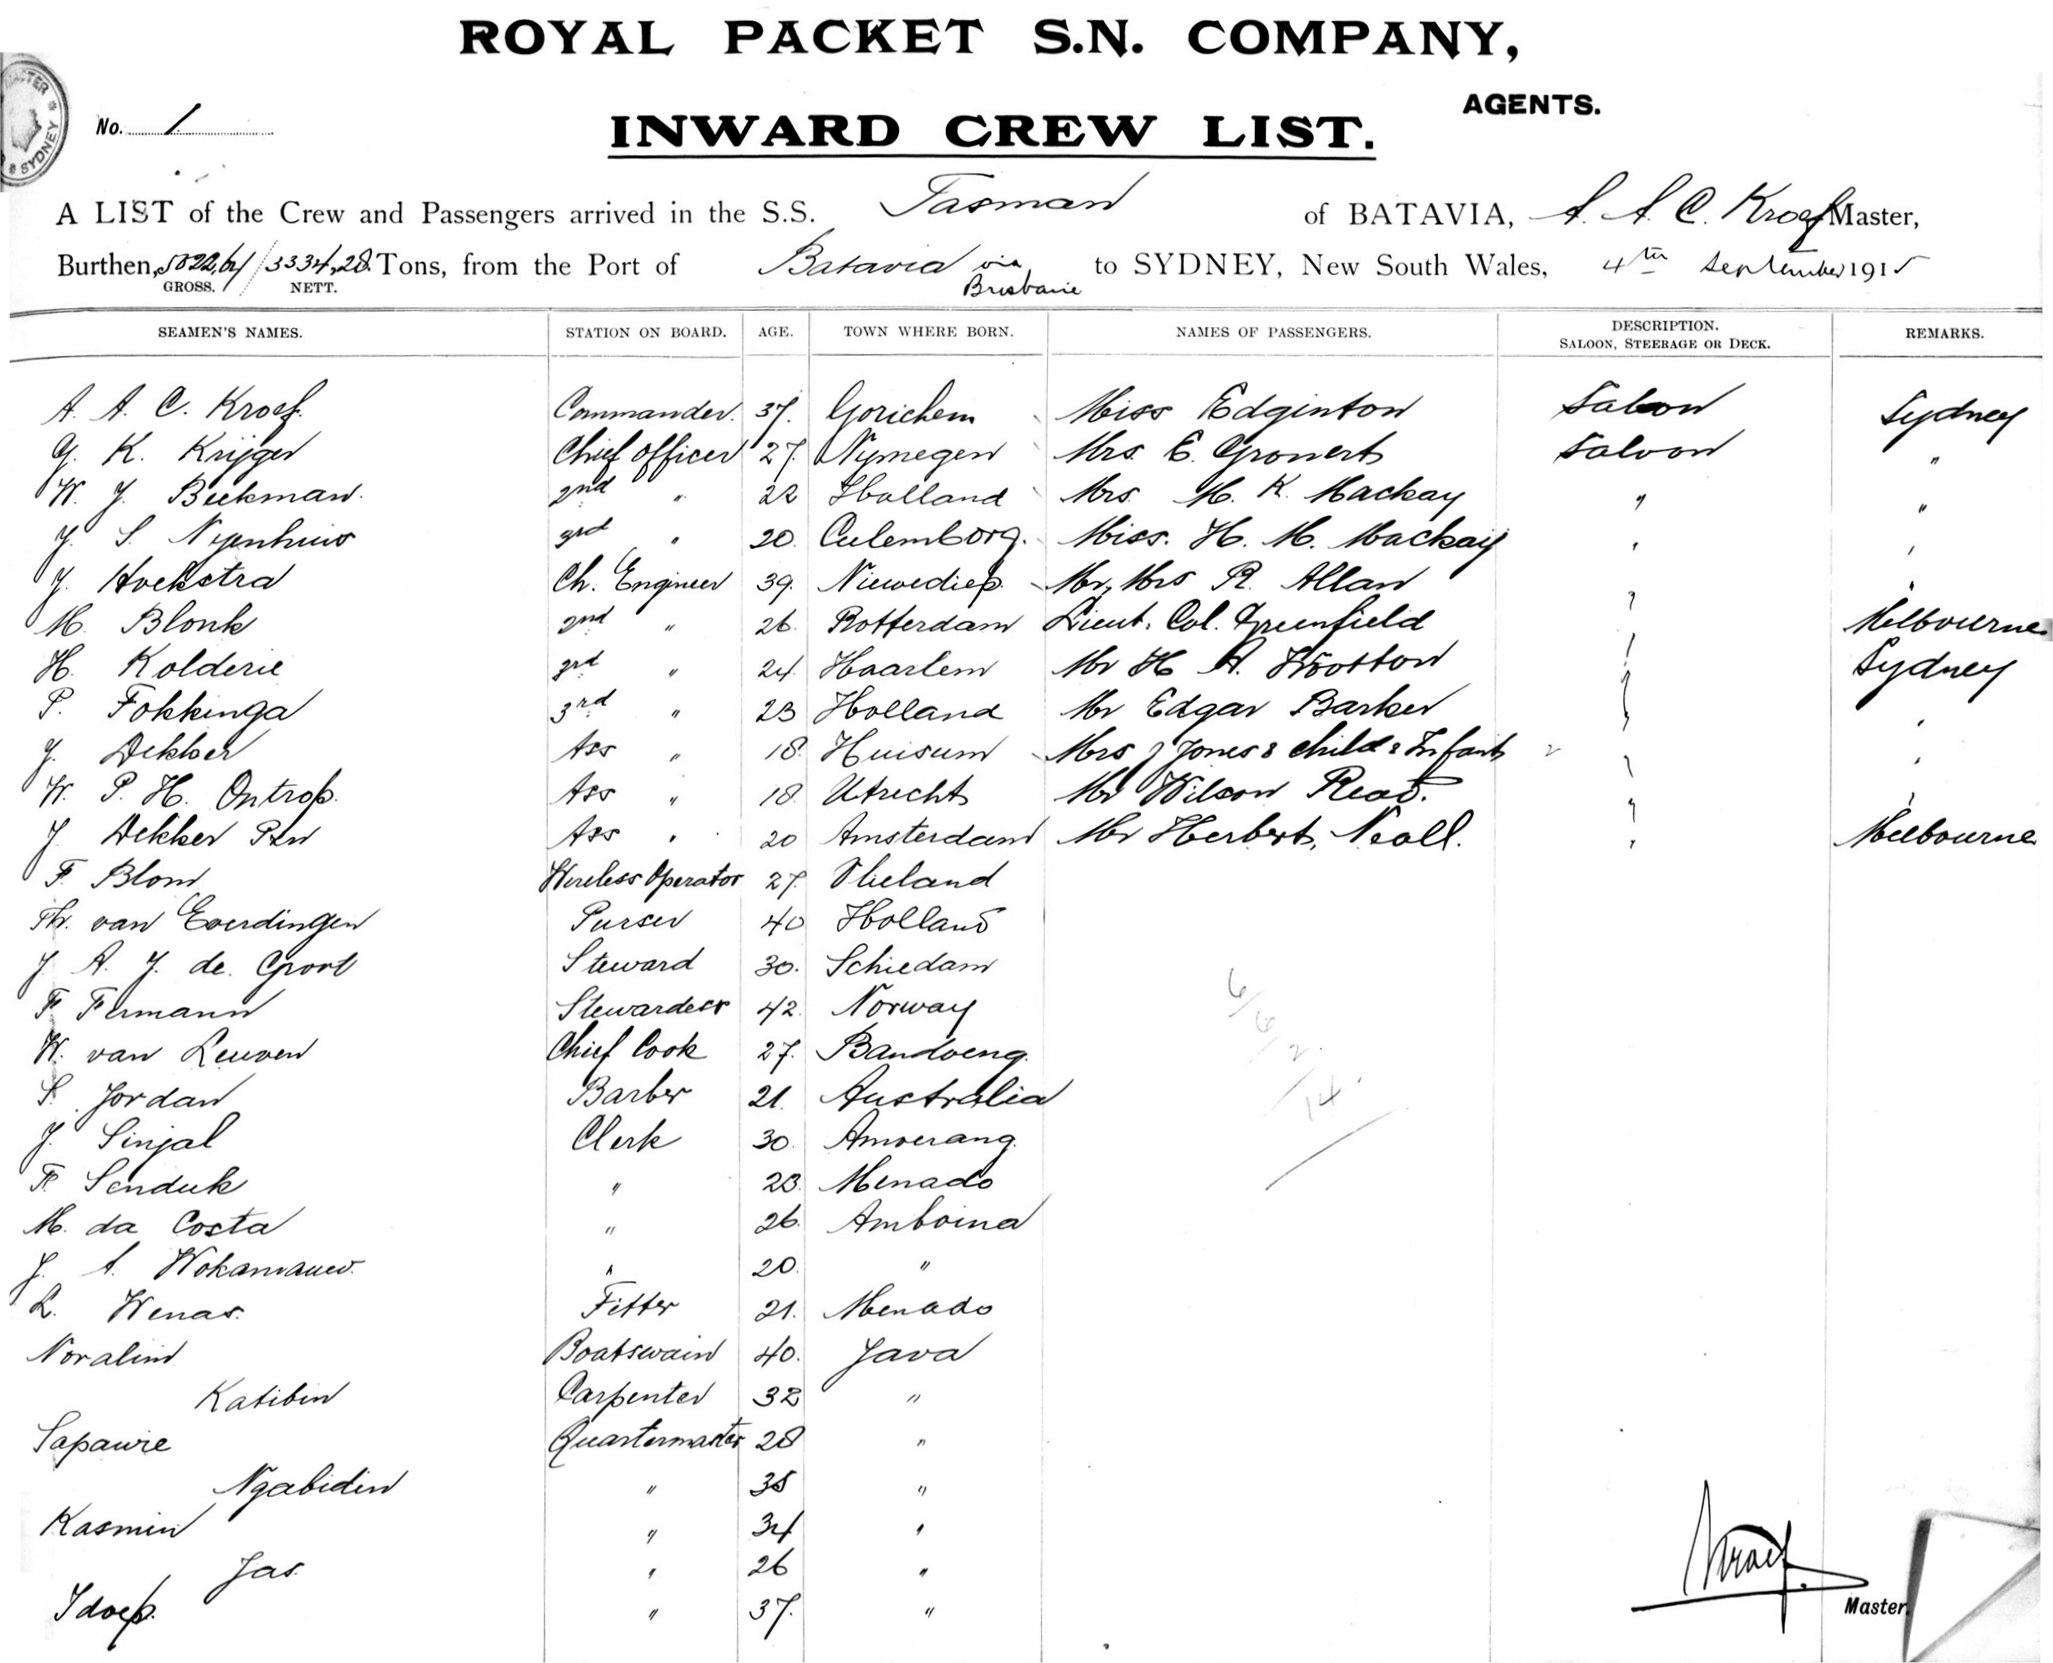 ROYAL PACKET S.N. COMPANY,
AGENTS.
MASTER SYDNEY
No. 1.
INWARD CREW LIST.
A LIST of the Crew and Passengers arrived in the S.S. Tasman of BATAVIA, A. A. C. Kroef Master,
Burthen, 5022,61/3334,28. Tons, from the Port of Batavia via Brisbane to SYDNEY, New South Wales, 4th September 1915
GROSS. NETT.
SEAMEN'S NAMES. STATION ON BOARD. AGE. TOWN WHERE BORN. NAMES OF PASSENGERS. DESCRIPTION. SALOON, STEERAGE OR DECK. REMARKS.
A. A. C. Kroef. Commander. 37. Gorichem Miss Edginton Saloon Sydney
G. K. Krijger Chief Officer 27. Nymegen Mrs E. Gronert Saloon "
W. J. Beekman. 2nd " 22 Holland Mrs M. K. Mackay " "
J. S. Nyenhuis 3rd " 20. Culemborg. Miss. H. M. Mackay " "
J. Hoekstra Ch. Engineer 39. Nieuwediep. Mr, Mrs R. Allan " "
M. Blonk 2nd " 26. Rotterdam Lieut. Col. Greenfield " Melbourne
H. Kolderie 3rd " 24. Haarlem Mr H A. Wootton " Sydney
P. Fokkinga 3rd " 23 Holland Mr Edgar Barker " "
J. Dekker Ass " 18. Huisum Mrs J Jones & child & Infant 2 " "
W. P. H. Ontrop. Ass " 18. Utrecht Mr Wilson Read. " "
J. Dekker Pzn Ass " 20 Amsterdam Mr Herbert, Neall. " Melbourne
F. Blom Wireless Operator 27. Vlieland
Th. van Everdingen Purser 40 Holland
J. A. J. de Groot Steward 30. Schiedam
F Fermann Stewardess 42. Norway
W. van Leuven Chief Cook 27. Bandoeng.
S. Jordan Barber 21. Australia
J. Sinjal Clerk 30. Amoerang.
F. Senduk " 23. Menado
M. da Costa " 26. Amboina
J. A. " 20. "
L. Wenas. Fitter 21. Menado
Noralim Boatswain 40. Java
Katibin Carpenter 32 "
Sapawie Quartermaster 28 "
Ngabidin " 35 "
Kasmin " 34 "
Jas. " 26 "
Idoep. " 37. "
6
6
2
14.
Kroef.
Master.